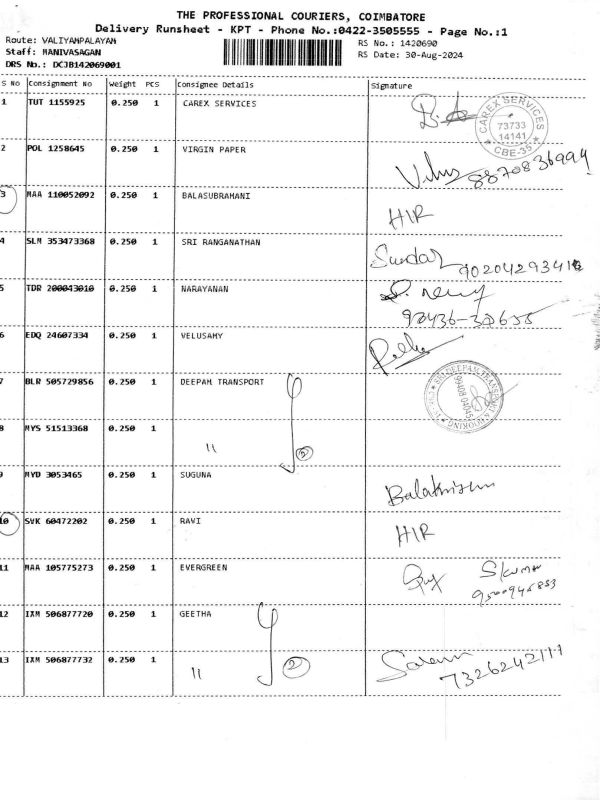 THE PROFESSIONAL COURIERS, COIMBATORE
Delivery Runsheet - KPT - Phone No.:0422-3505555 - Page No.:1
Route: VALIYAMPALAYAM
RS No.: 1420690
Staff: MANIVASAGAN
RS Date: 30-Aug-2024
DRS No.: DCJB142069001
S No Consignment No Weight PCS Consignee Details Signature
1 TUT 1155925 0.250 1 CAREX SERVICES
CAREX SERVICES
73733
14141
CBE-35
2 POL 1258645 0.250 1 VIRGIN PAPER
8870836994
3 MAA 110052092 0.250 1 BALASUBRAMANI
HIR
4 SLM 353473368 0.250 1 SRI RANGANATHAN
Sundar
5 TDR 200043010 0.250 1 NARAYANAN
6 EDQ 24607334 0.250 1 VELUSAMY
7 BLR 505729856 0.250 1 DEEPAM TRANSPORT
8 MYS 51513368 0.250 1 〃
9 MYD 3053465 0.250 1 SUGUNA
10 SVK 60472202 0.250 1 RAVI
HIR
11 MAA 105775273 0.250 1 EVERGREEN
12 IXM 506877720 0.250 1 GEETHA
13 IXM 506877732 0.250 1 〃 2